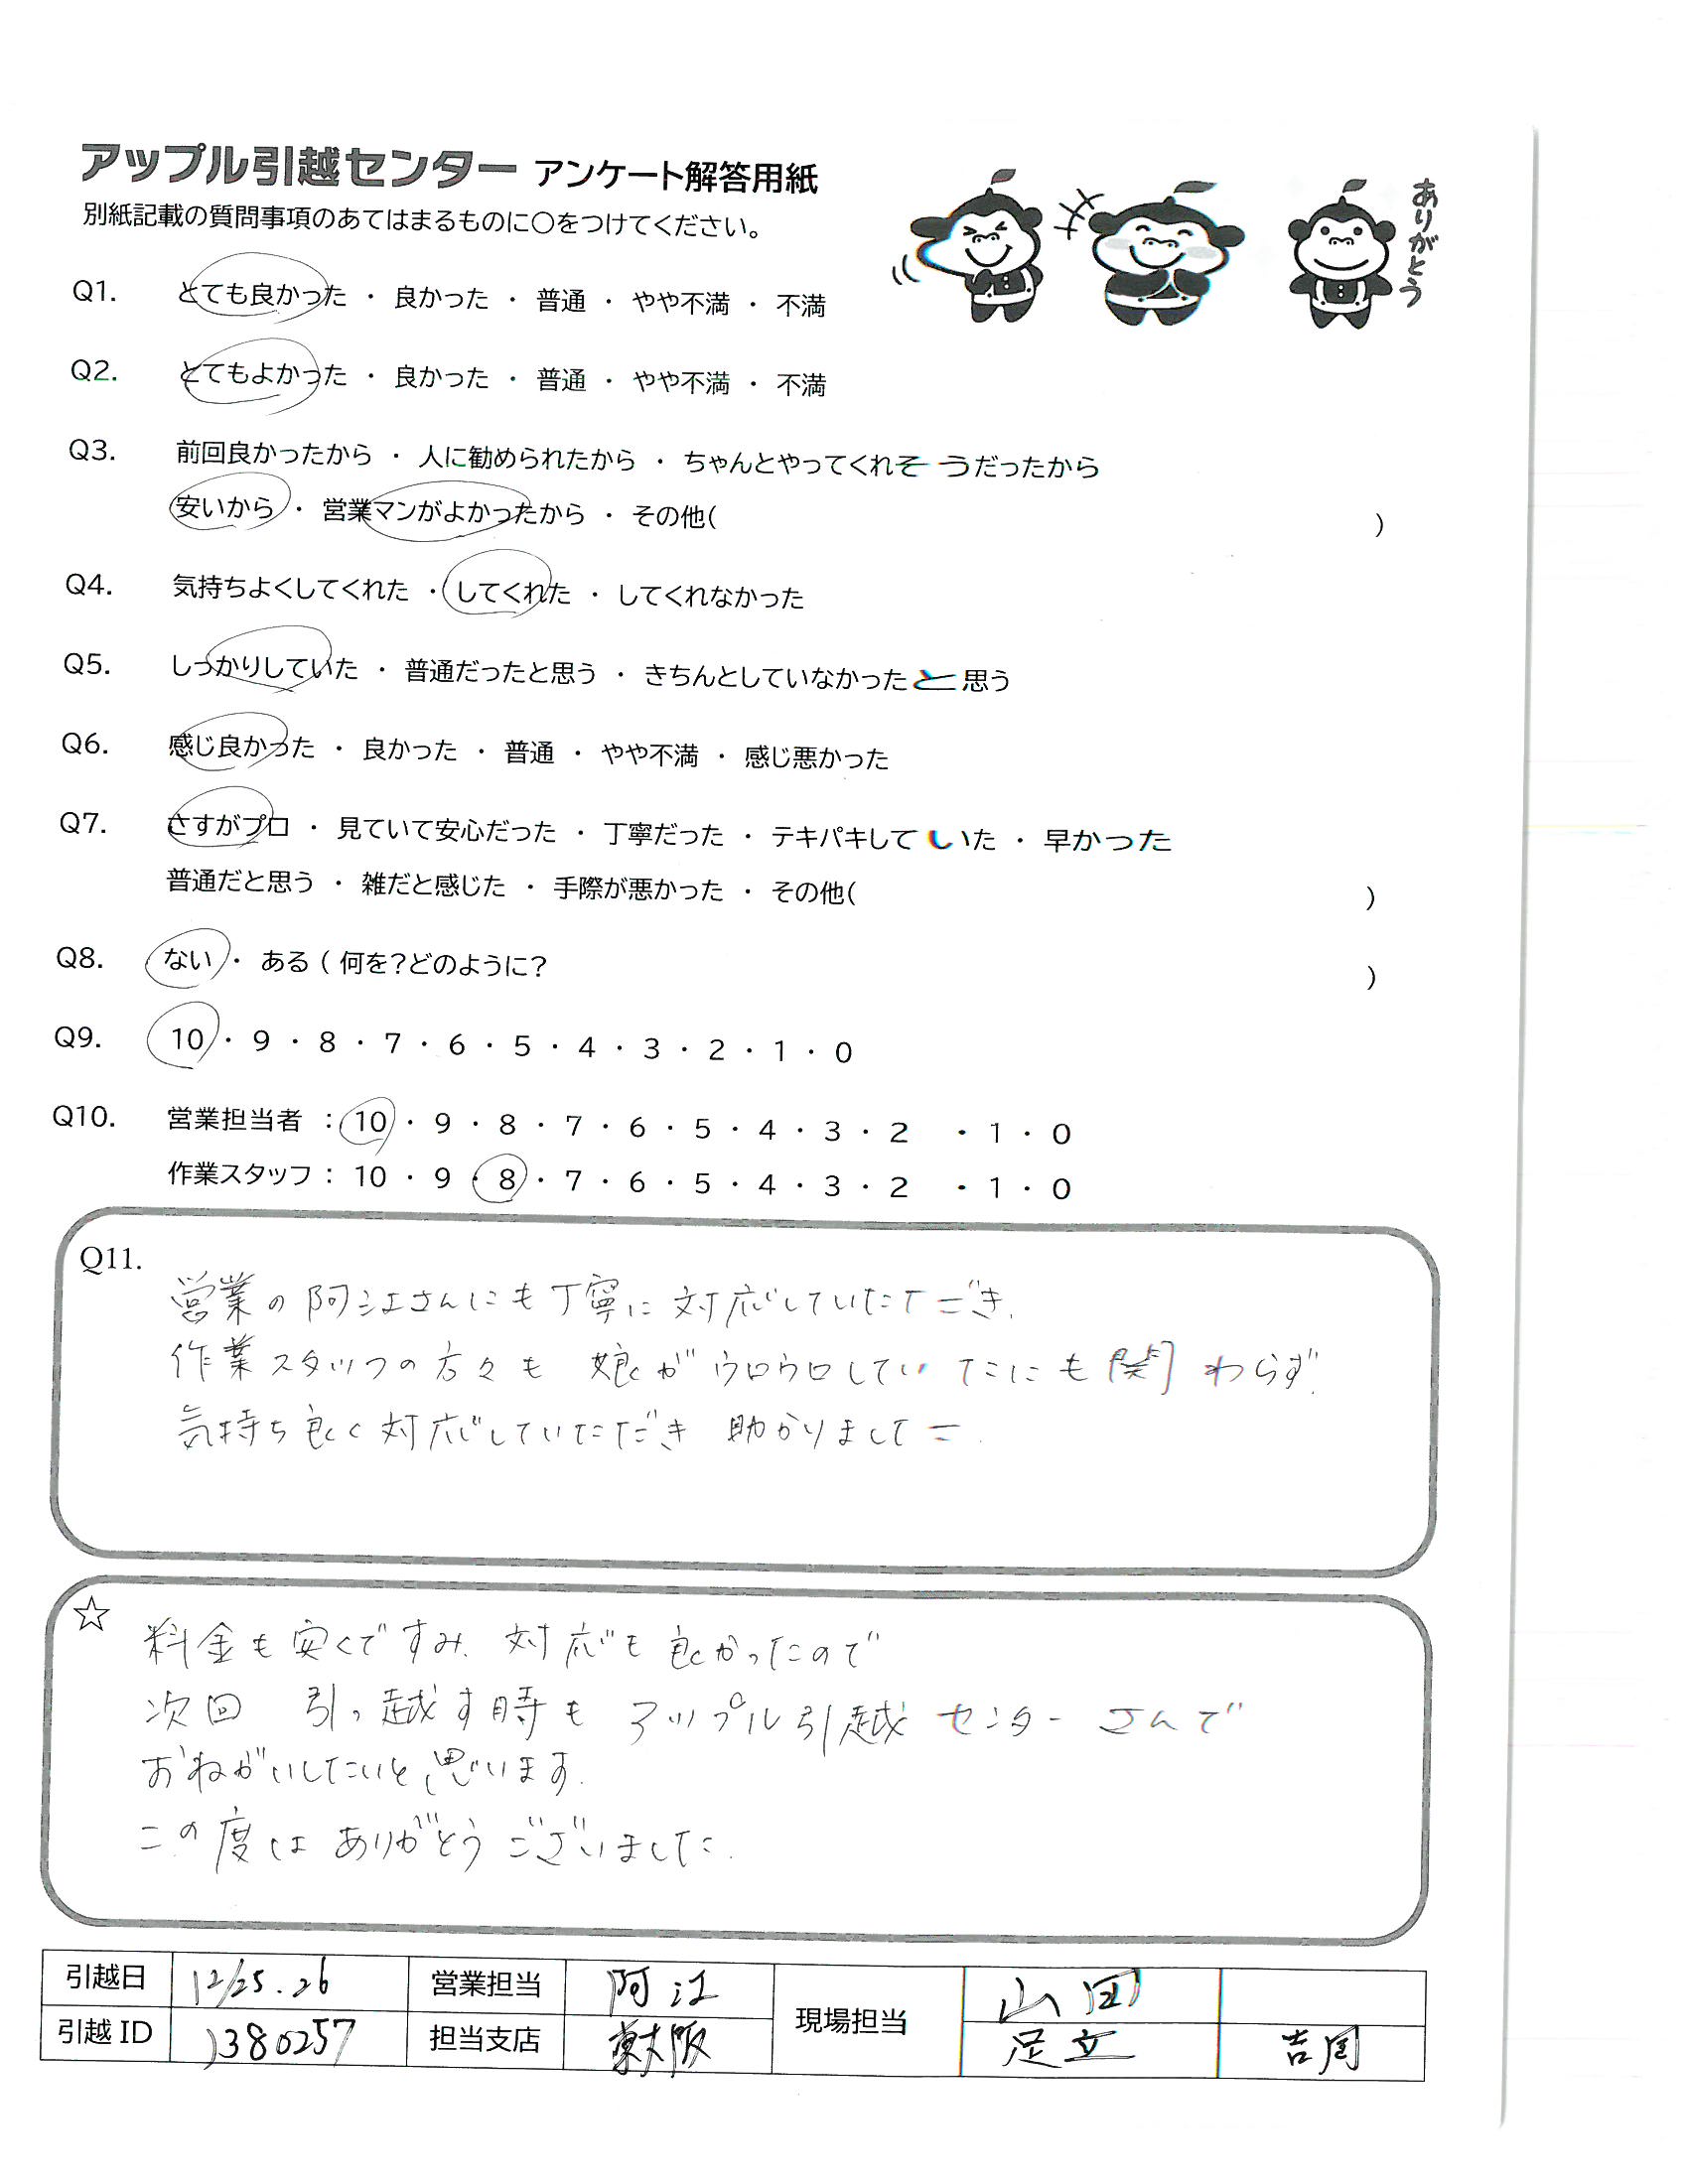 アップル引越センター アンケート解答用紙
別紙記載の質問事項のあてはまるものに○をつけてください。
ありがとう
Q1. とても良かった ・ 良かった ・ 普通 ・ やや不満 ・ 不満
Q2. とてもよかった ・ 良かった ・ 普通 ・ やや不満 ・ 不満
Q3. 前回良かったから ・ 人に勧められたから ・ ちゃんとやってくれそうだったから
安いから ・ 営業マンがよかったから ・ その他( )
Q4. 気持ちよくしてくれた ・ してくれた ・ してくれなかった
Q5. しっかりしていた ・ 普通だったと思う ・ きちんとしていなかったと思う
Q6. 感じ良かった ・ 良かった ・ 普通 ・ やや不満 ・ 感じ悪かった
Q7. さすがプロ ・ 見ていて安心だった ・ 丁寧だった ・ テキパキしていた ・ 早かった
普通だと思う ・ 雑だと感じた ・ 手際が悪かった ・ その他( )
Q8. ない ・ ある ( 何を?どのように? )
Q9. 10 ・ 9 ・ 8 ・ 7 ・ 6 ・ 5 ・ 4 ・ 3 ・ 2 ・ 1 ・ 0
Q10. 営業担当者 : 10 ・ 9 ・ 8 ・ 7 ・ 6 ・ 5 ・ 4 ・ 3 ・ 2 ・ 1 ・ 0
作業スタッフ : 10 ・ 9 ・ 8 ・ 7 ・ 6 ・ 5 ・ 4 ・ 3 ・ 2 ・ 1 ・ 0
Q11.
営業の阿江さんにも丁寧に対応していただき、
作業スタッフの方々も 娘がウロウロしていたにも関わらず、
気持ち良く対応していただき 助かりました。
☆ 料金も安くですみ、対応も良かったので
次回 引っ越す時も アップル引越センターさんで
おねがいしたいと思います。
この度は ありがとうございました。
引越日 12/25.26 営業担当 阿江 現場担当 山田
引越ID 1380257 担当支店 東大阪 足立 吉岡